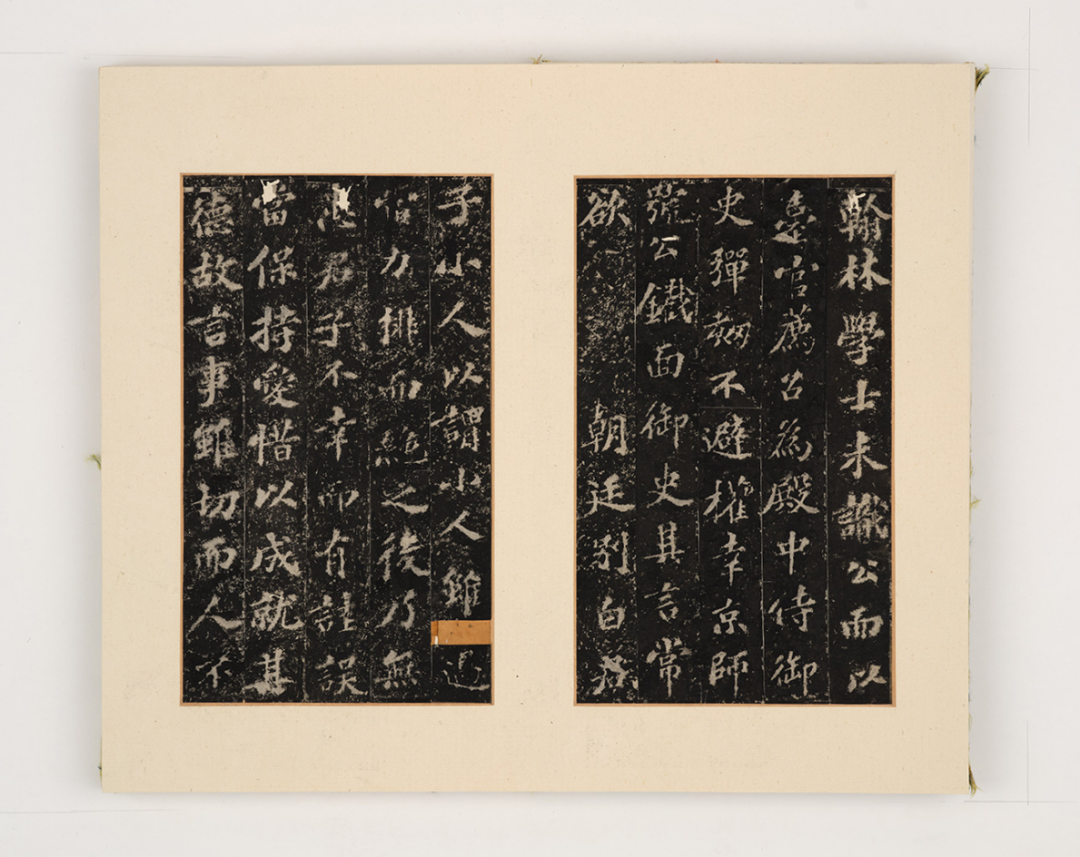 翰林學士未識公而以
臺官薦召爲殿中侍御
史彈劾不避權幸京師
號公鐵面御史其言常
欲朝廷別白
子小人以謂小人雖過
當力排而絕之後乃無
患君子不幸而有詿誤
當保持愛惜以成就其
德故言事雖切而人不